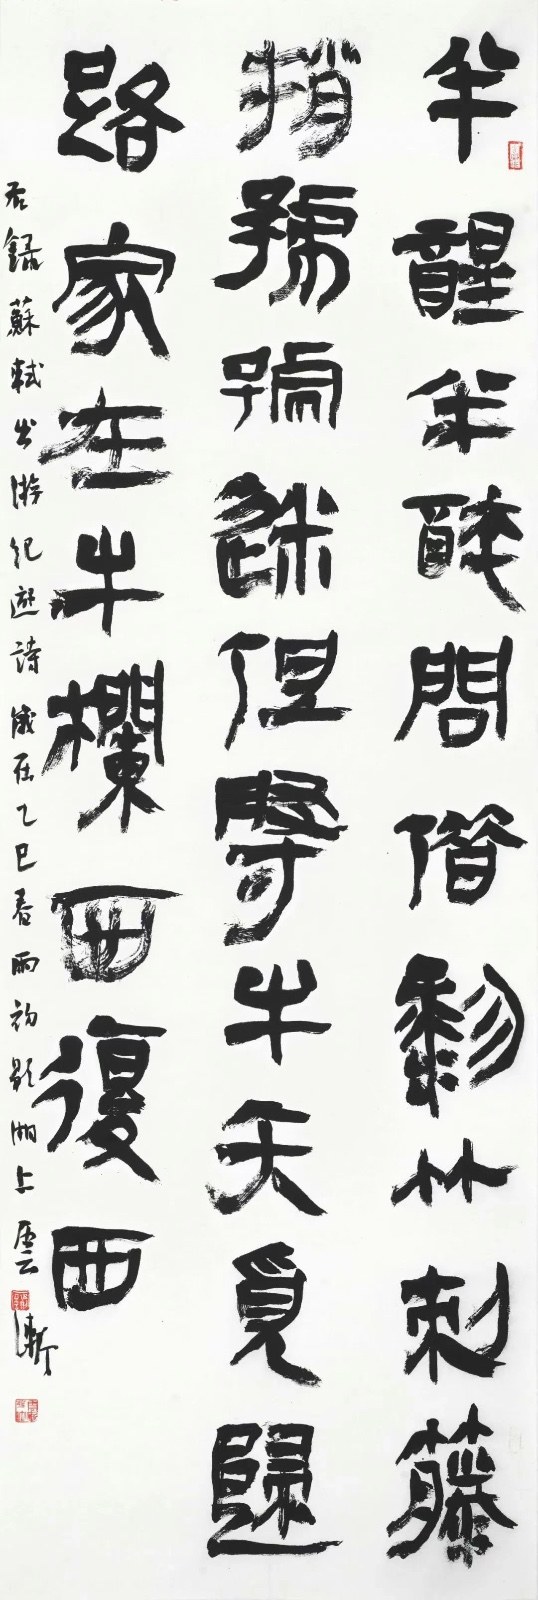 半醒半醉問諸黎竹刺藤
梢迷但尋牛矢覓歸
路家在牛欄西復西
右錄蘇軾出游紀遊詩歲在乙巳春雨初湖上漸